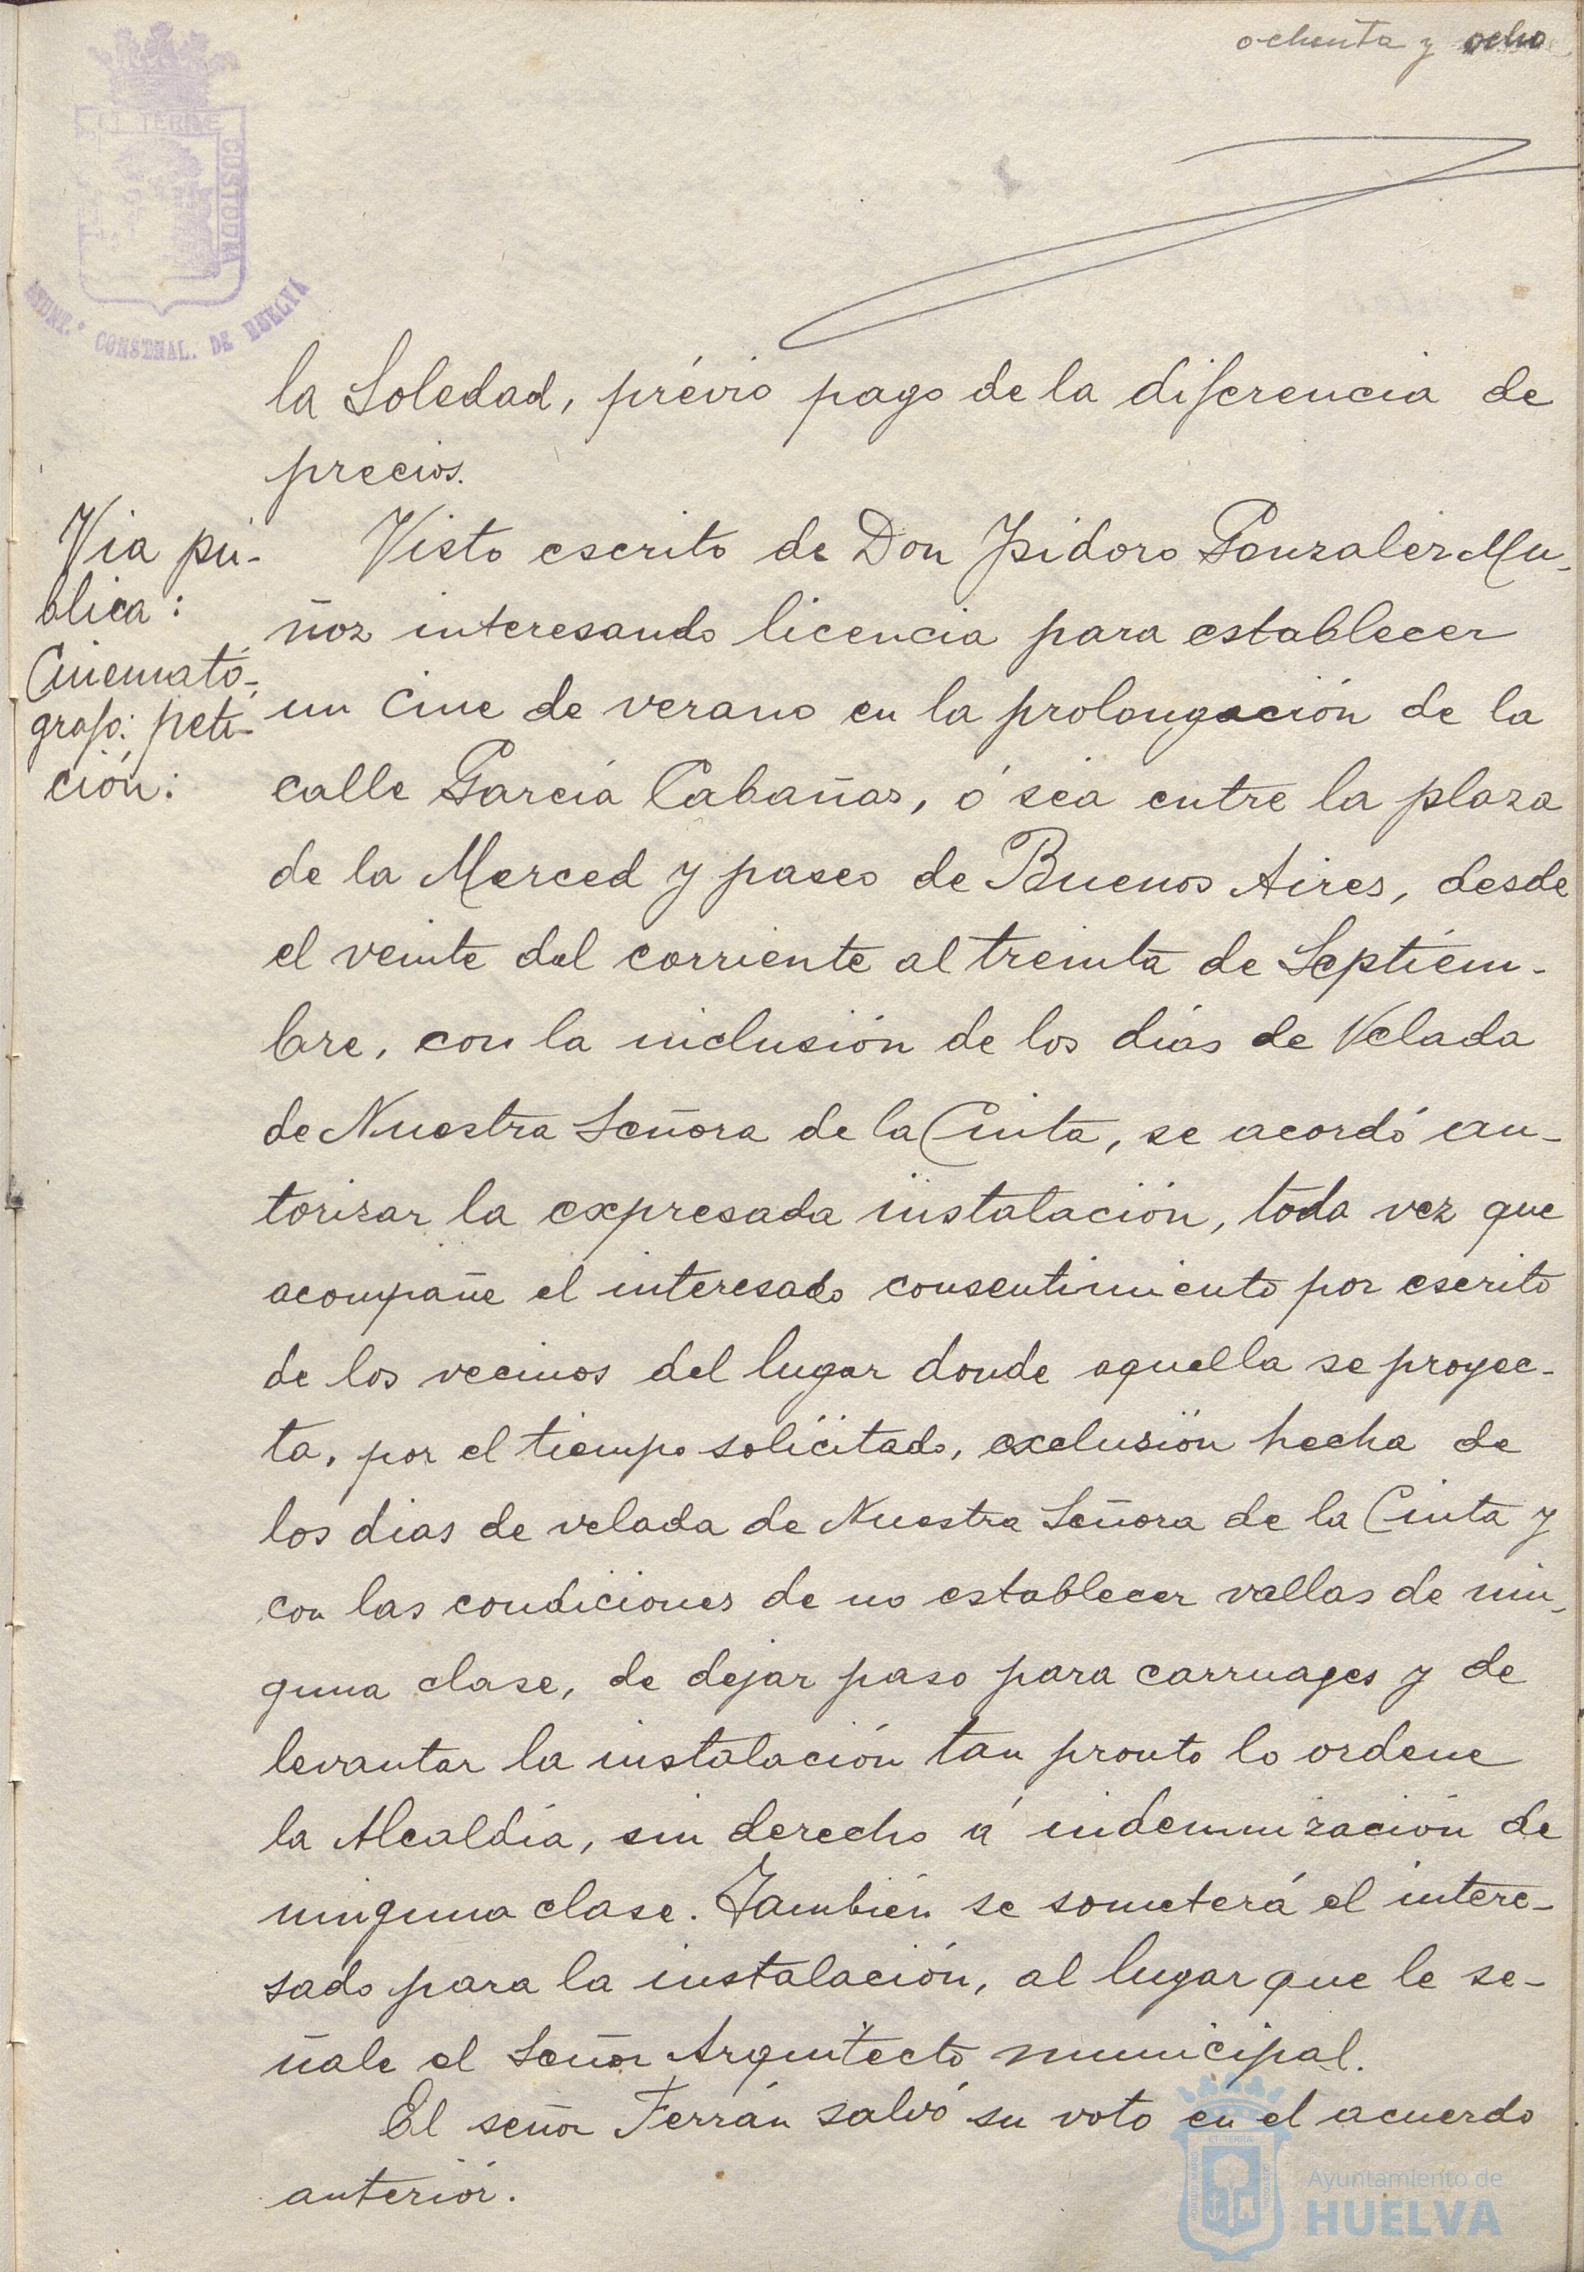 ochenta y ocho
ET TERRE
CUSTODIA
AYUNT.º CONSTNAL. DE HUELVA
la Soledad, prévio pago de la diferencia de
precios.
Via pú-
blica:
Cinemató-
grafo: peti-
ción:
Visto escrito de Don Isidoro Gonzalez Mu-
ñoz interesando licencia para establecer
un cine de verano en la prolongación de la
calle García Cabañas, ó séa entre la plaza
de la Merced y paseo de Buenos Aires, desde
el veinte del corriente al treinta de Septiem-
bre, con la inclusión de los dias de Velada
de Nuestra Señora de la Cinta, se acordó au-
torizar la expresada instalación, toda vez que
acompañe el interesado consentimiento por escrito
de los vecinos del lugar donde aquella se proyec-
ta, por el tiempo solicitado, exclusión hecha de
los dias de velada de Nuestra Señora de la Cinta y
con las condiciones de no establecer vallas de nin-
guna clase, de dejar paso para carruages y de
levantar la instalación tan pronto lo ordene
la Alcaldía, sin derecho á indemnización de
ninguna clase. También se someterá el intere-
sado para la instalación, al lugar que le se-
ñale el Señor Arquitecto municipal.
El señor Ferrán salvó su voto en el acuerdo
anterior.
Ayuntamiento de
HUELVA